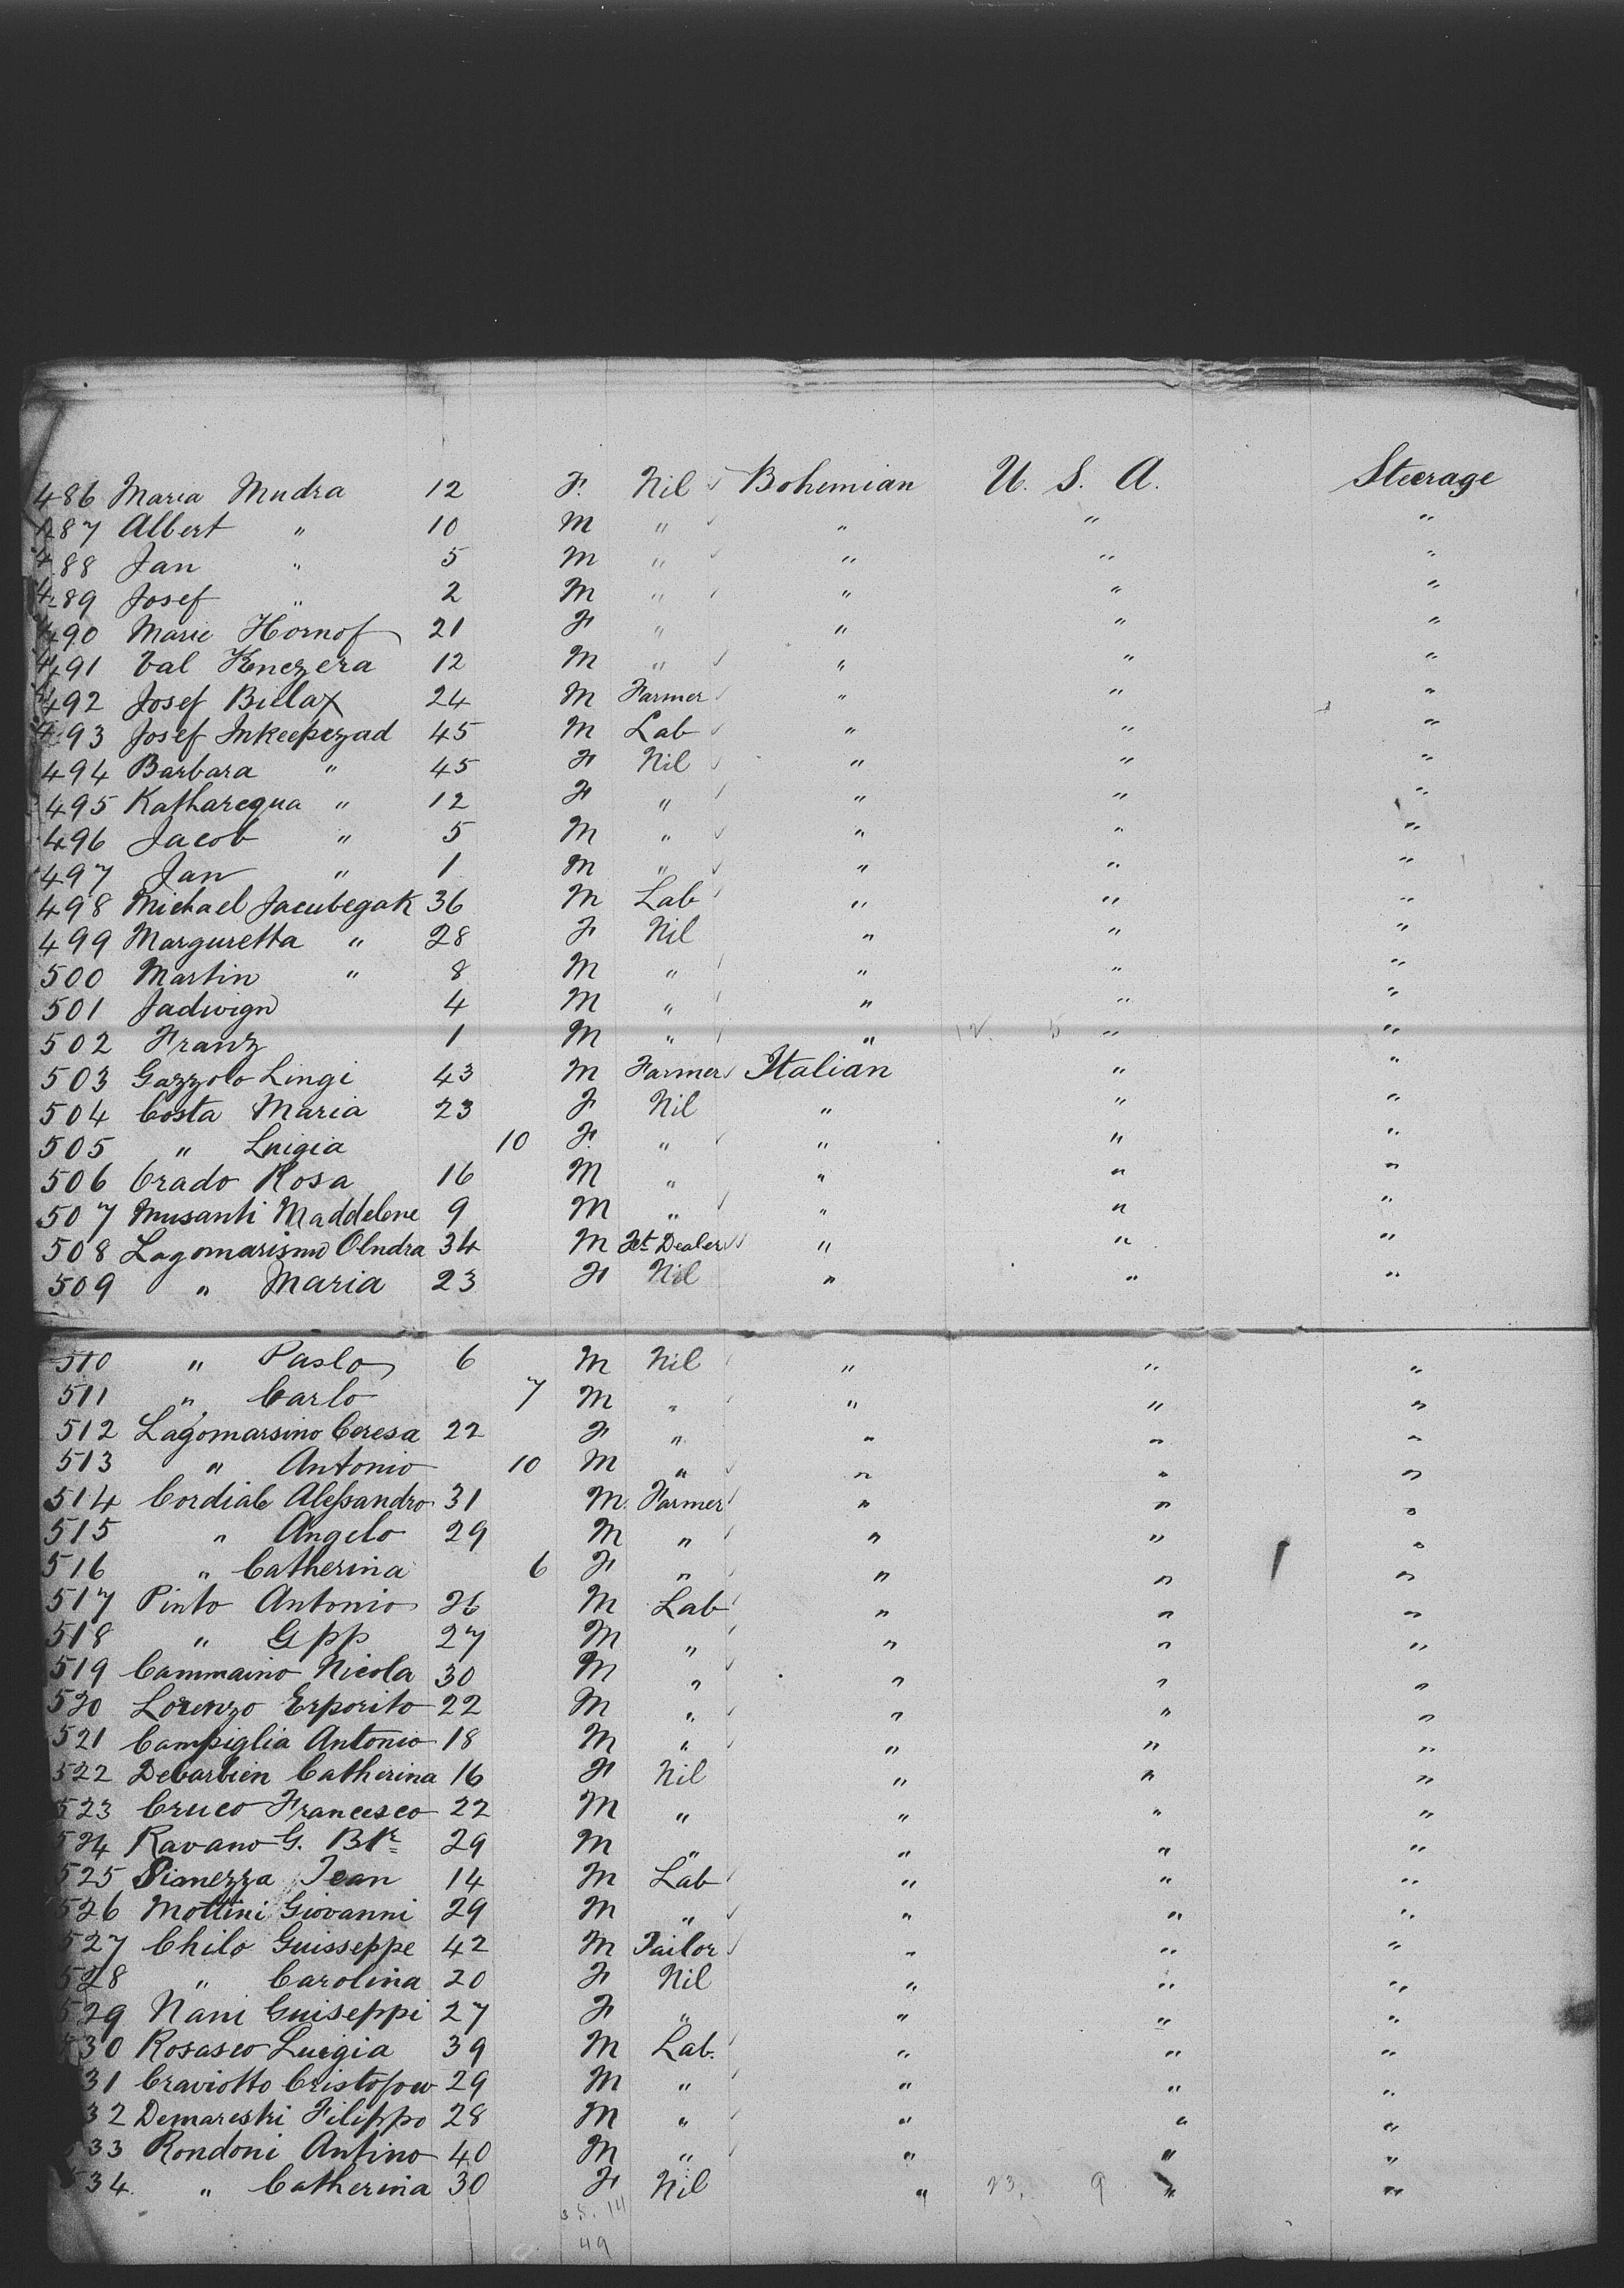 486 Maria Mudra 12 F. Nil Bohemian U. S. A. Steerage
487 Albert " 10 M " " " "
488 Jan " 5 M " " " "
489 Josef " 2 M " " " "
490 Marie Hornof 21 F " " " "
491 Val Knezera 12 M " " " "
492 Josef Bulax 24 M Farmer " " "
493 Josef Inkeepezad 45 M Lab " " "
494 Barbara " 45 F Nil " " "
495 Katharequa " 12 F " " " "
496 Jacob " 5 M " " " "
497 Jan " 1 M " " " "
498 Michael Jacubegak 36 M Lab " " "
499 Marguretta " 28 F Nil " " "
500 Martin " 8 M " " " "
501 Jadwign 4 M " " " "
502 Franz 1 M " " 12. 5 " "
503 Gazzolo Lingi 43 M Farmer Italian " "
504 Costa Maria 23 F Nil " " "
505 " Luigia 10 F. " " " "
506 Crado Rosa 16 M " " " "
507 Musanti Maddelene 9 M " " " "
508 Lagomarisino Olndra 34 M Ft Dealer " " "
509 " Maria 23 F Nil " " "
510 " Paslo 6 M Nil " " "
511 " Carlo 7 M " " " "
512 Lagomarsino Ceresa 22 F " " " "
513 " Antonio 10 M " " " "
514 Cordiale Alessandro 31 M. Farmer " " "
515 " Angelo 29 M " " " "
516 " Catherina 6 F " " " "
517 Pinto Antonio 26 M Lab " " "
518 " G pp 27 M " " " "
519 Cammaino Nicola 30 M " " " "
520 Lorenzo Erporito 22 M " " " "
521 Campiglia Antonio 18 M " " " "
522 Debarbien Catherina 16 F Nil " " "
523 Cruco Francesco 22 M " " " "
524 Ravano G. Bte 29 M " " " "
525 Pianezza Jean 14 M Lab " " "
526 Mottini Giovanni 29 M " " " "
527 Chilo Guisseppe 42 M Tailor " " "
528 " Carolina 20 F Nil " " "
529 Nani Guiseppi 27 F " " " "
530 Rosasco Luigia 39 M Lab. " " "
31 Craviotto Cristofow 29 M " " " "
32 Demareski Filippo 28 M " " " "
533 Rondoni Antino 40 M " " " "
534. " Catherina 30 F Nil " 23. 9 " "
35. 14
49